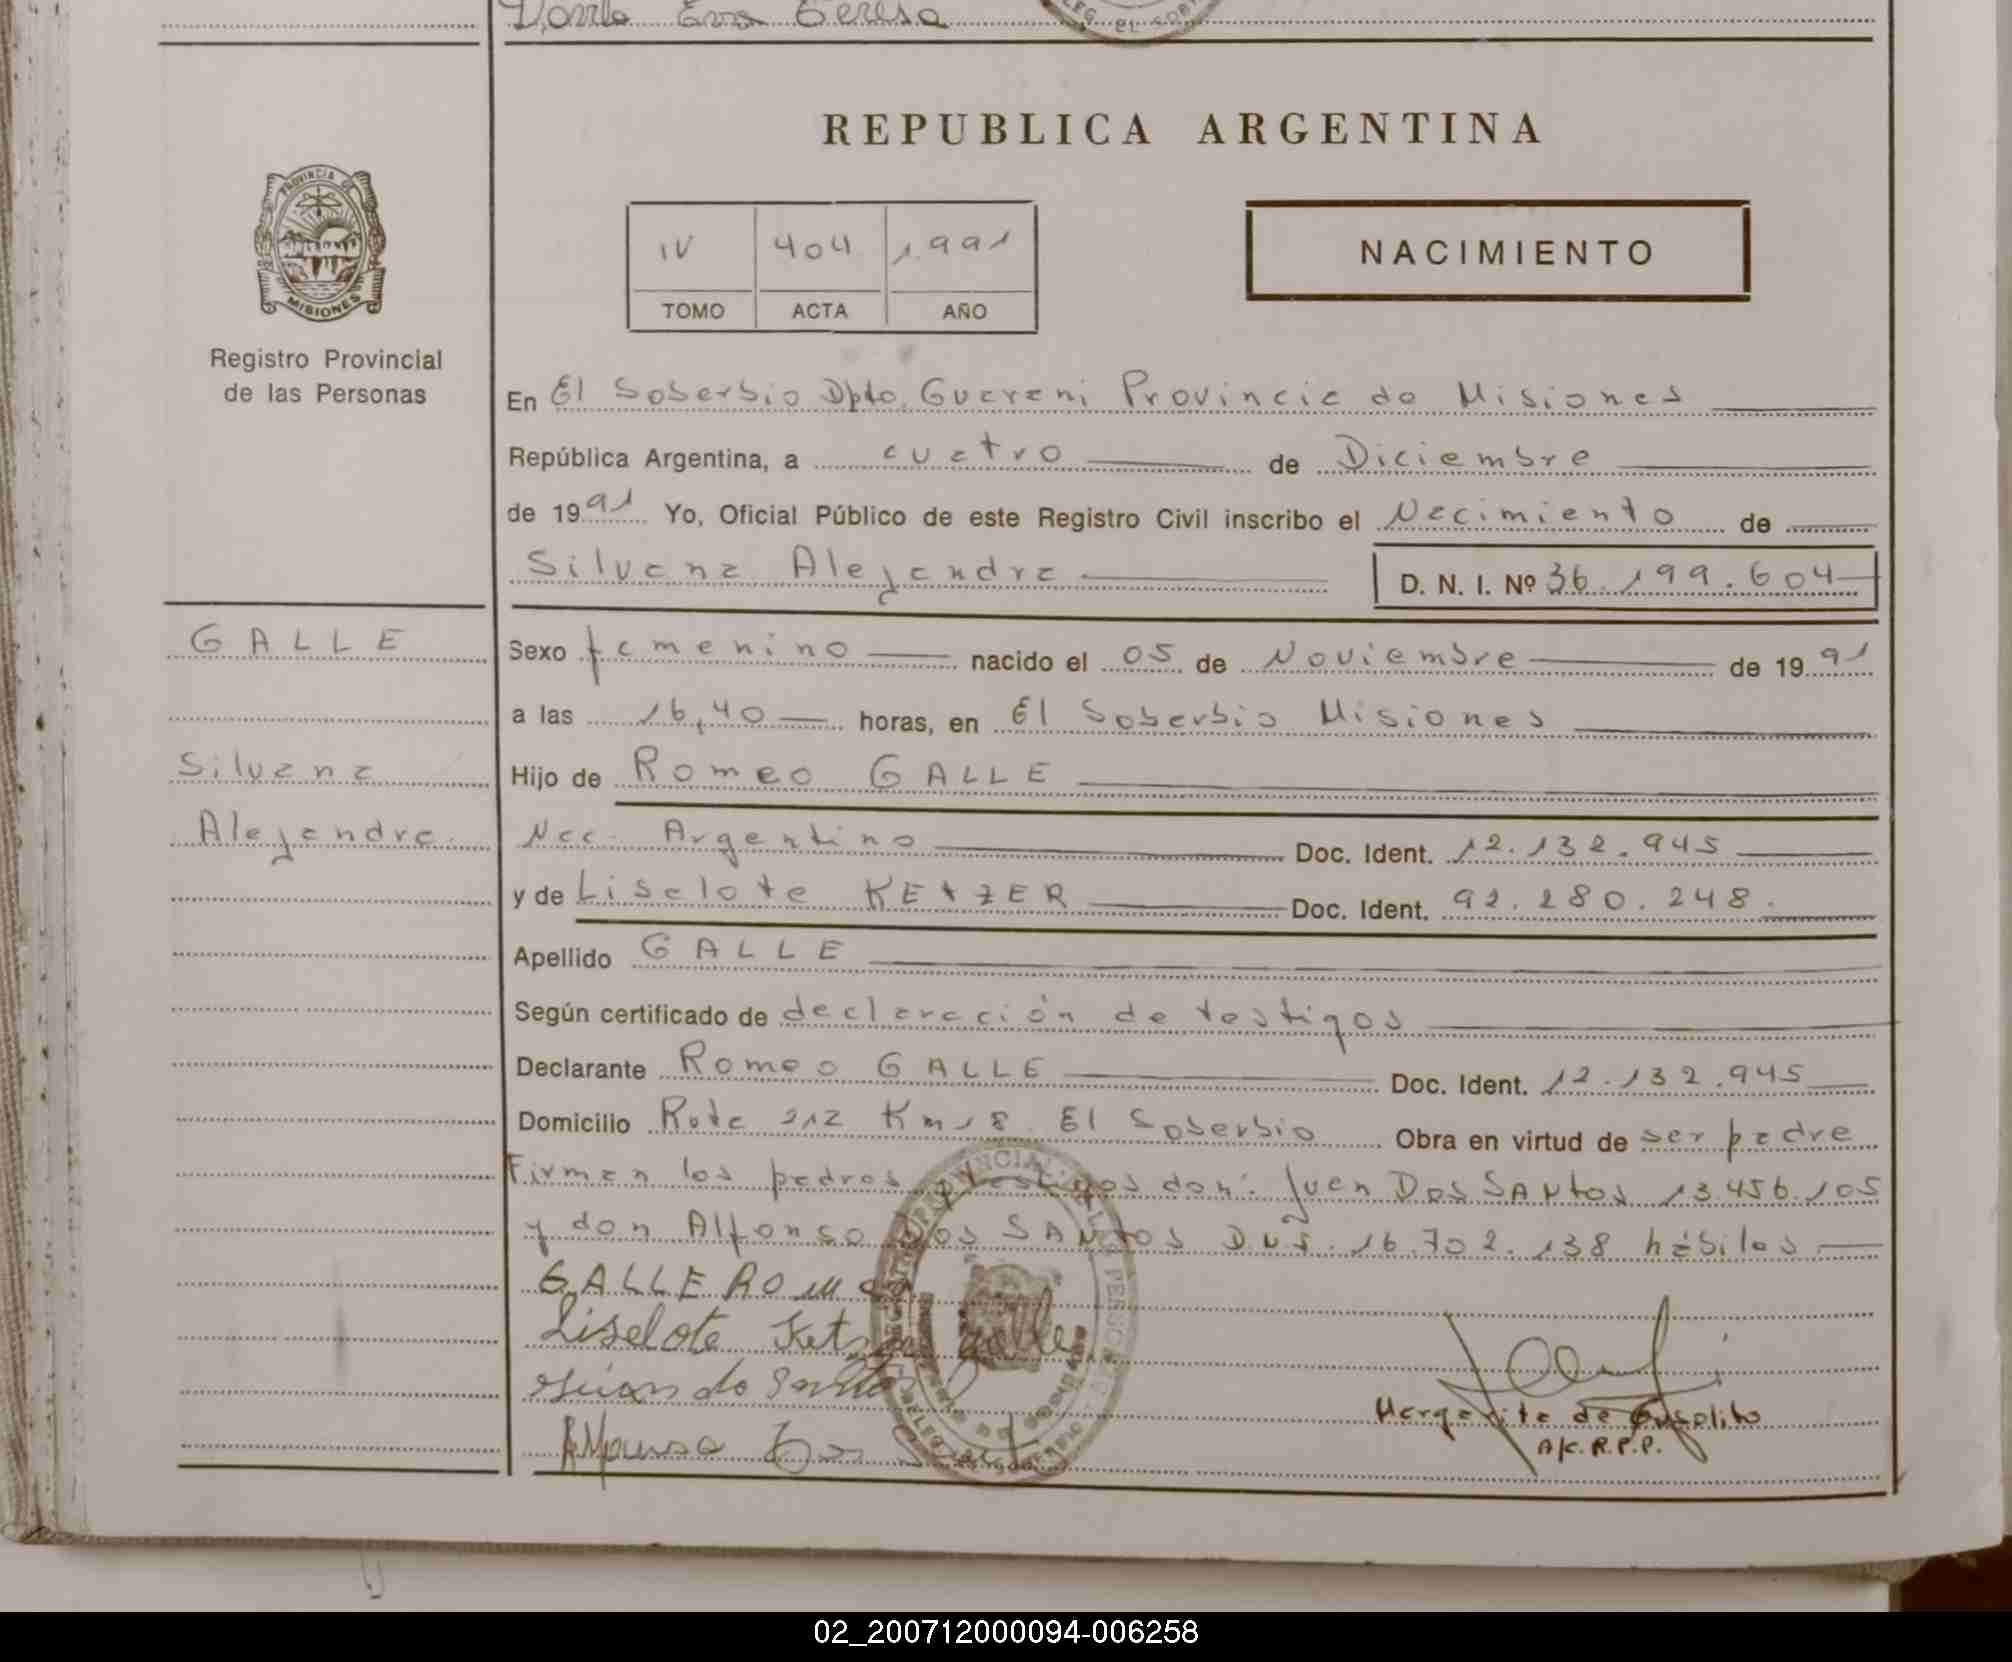 Eva Teresa
REPUBLICA ARGENTINA
PROVINCIA DE
MISIONES
Registro Provincial
de las Personas
IV 404 1.991
TOMO ACTA AÑO
NACIMIENTO
En El Soberbio Dpto. Guarani Provincia de Misiones
República Argentina, a cuatro de Diciembre
de 1991 Yo, Oficial Público de este Registro Civil inscribo el Nacimiento de
Silvana Alejandra D. N. I. Nº 36.199.604
GALLE
Silvana
Alejandra.
Sexo femenino nacido el 05 de Noviembre de 1991
a las 16,40 horas, en El Soberbio Misiones
Hijo de Romeo GALLE
Nac. Argentino Doc. Ident. 12.132.945
y de Liselote KEtzER Doc. Ident. 92.280.248.
Apellido GALLE
Según certificado de declaración de testigos
Declarante Romeo GALLE Doc. Ident. 12.132.945
Domicilio Ruta 212 Km 18 El Soberbio Obra en virtud de ser padre
Firman los padres y testigos don: Juan Dos SANtos 13.456.105
y don Alfonso Dos SANtos D.N.I. 16.702.138 hábiles
GALLE ROMEO
Liselote Ketzer Galle
Alfonso Dos
Margarita de
A/C. R.P.P.
02_200712000094-006258